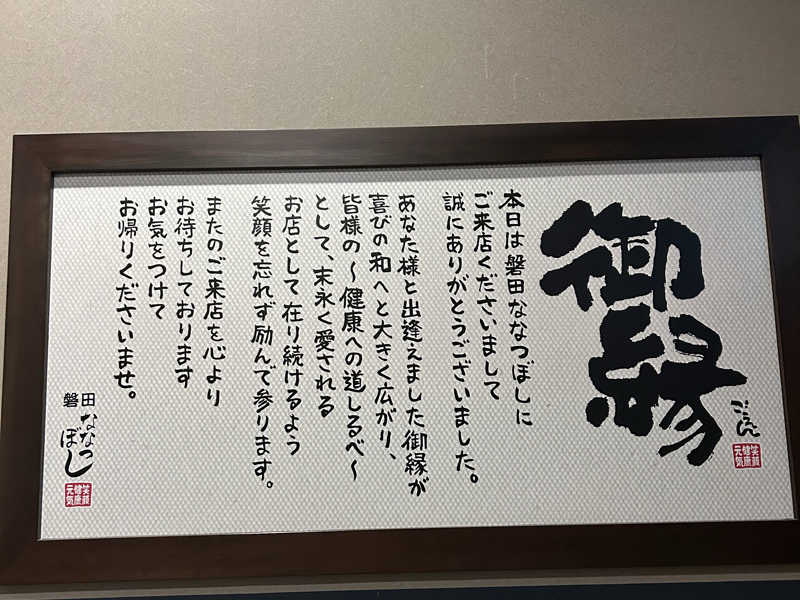 御縁
ごえん
笑顔
健康
元気
本日は磐田ななつぼしに
ご来店くださいまして
誠にありがとうございました。
あなた様と出逢えました御縁が
喜びの和へと大きく広がり、
皆様の～健康への道しるべ～
として、末永く愛される
お店として在り続けるよう
笑顔を忘れず励んで参ります。
またのご来店を心より
お待ちしております
お気をつけて
お帰りくださいませ。
磐田
ななつ
ぼし
笑顔
健康
元気